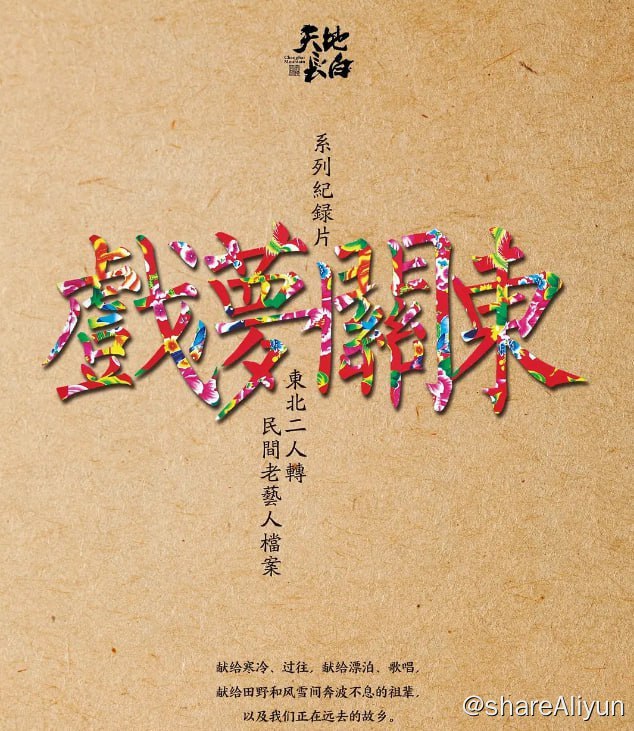 天地
長白
Changbai
Mountain
系列紀録片
戲夢關東
東北二人轉
民間老藝人檔案
献给寒冷、过往，献给漂泊、歌唱，
献给田野和风雪间奔波不息的祖辈，
以及我们正在远去的故乡。
@shareAliyun